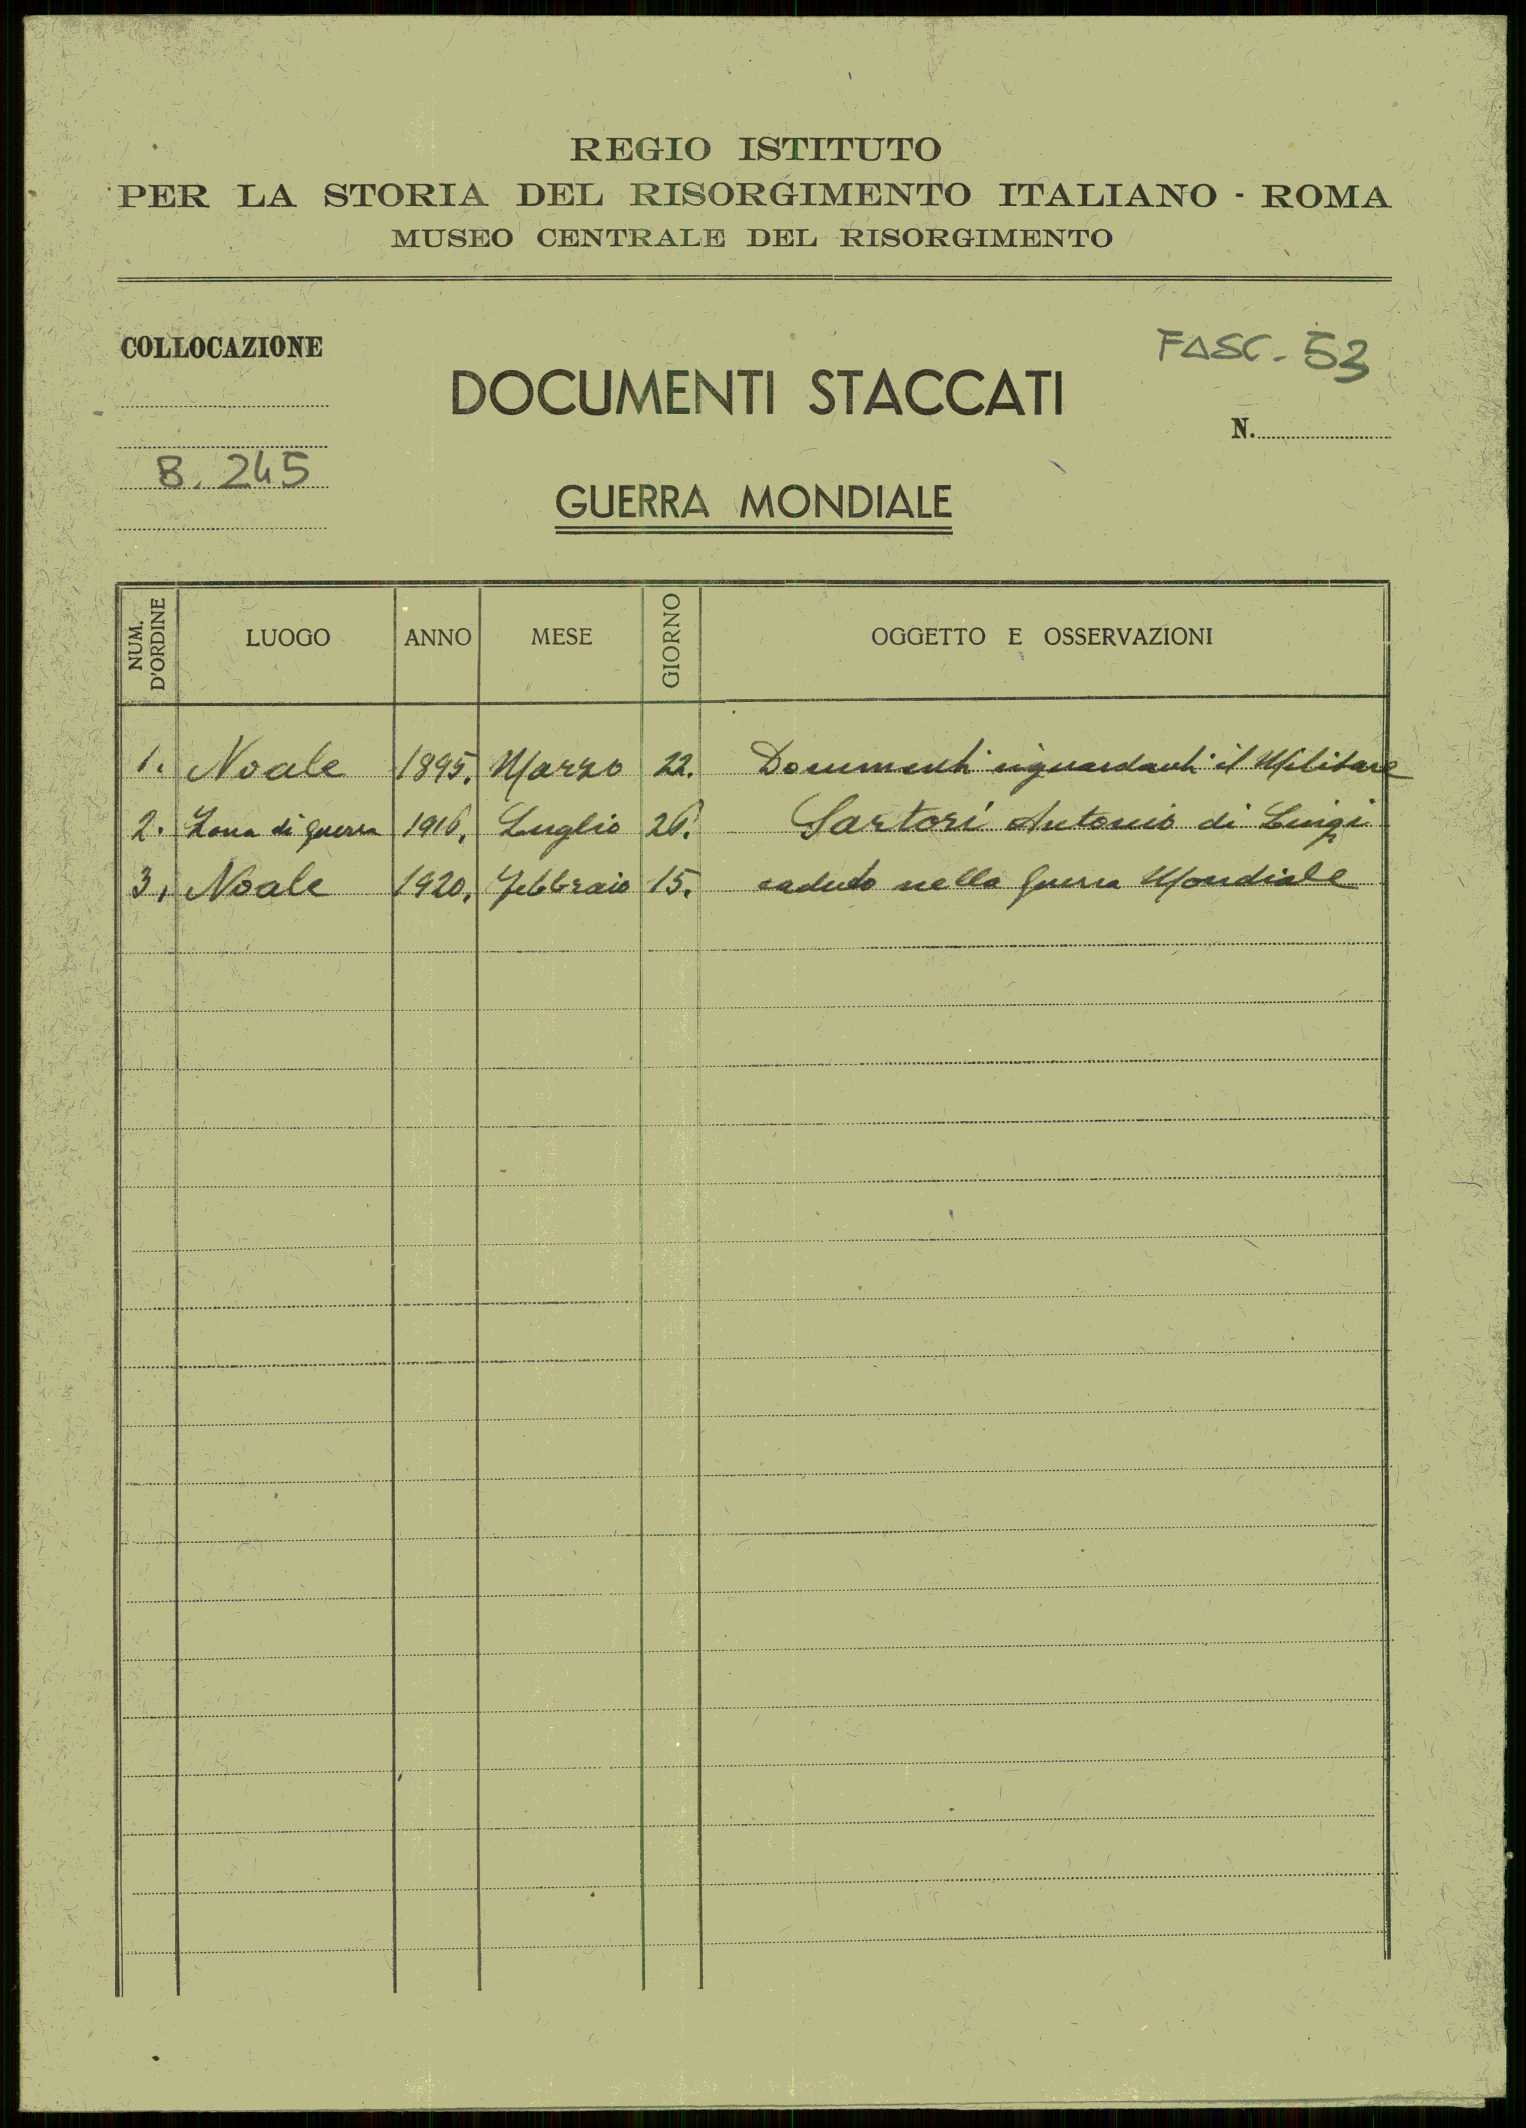 REGIO ISTITUTO
PER LA STORIA DEL RISORGIMENTO ITALIANO - ROMA
MUSEO CENTRALE DEL RISORGIMENTO
COLLOCAZIONE
FASC. 53
DOCUMENTI STACCATI
N.
B. 245
GUERRA MONDIALE
NUM. D'ORDINE LUOGO ANNO MESE GIORNO OGGETTO E OSSERVAZIONI
1. Noale 1895. Marzo 22. Documenti riguardanti il Militare
2. Zona di guerra 1916. Luglio 26. Sartori Antonio di Luigi
3. Noale 1920. Febbraio 15. caduto nella guerra Mondiale